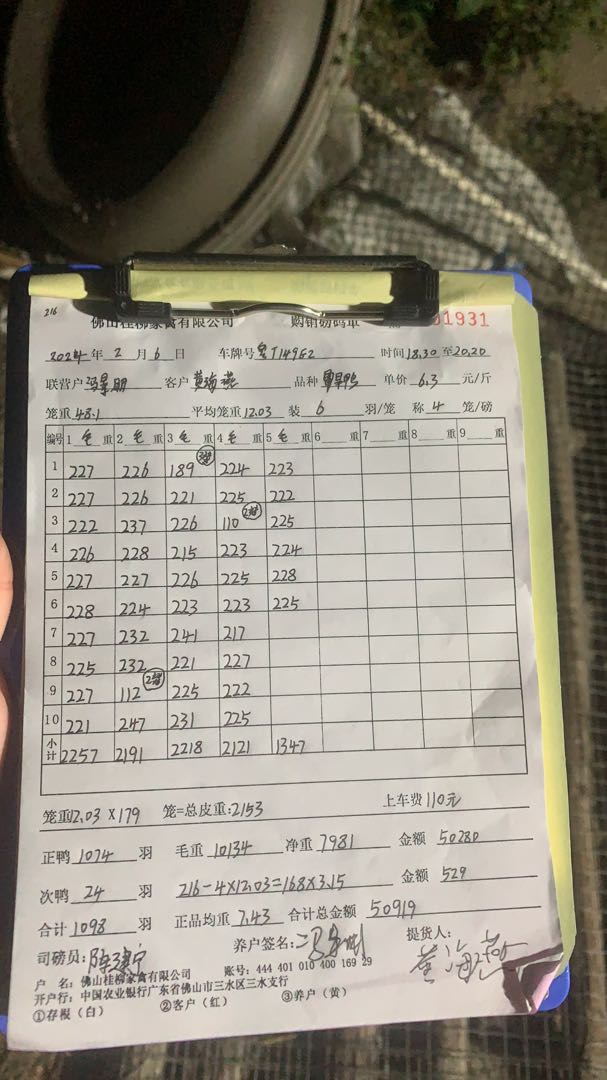 216
佛山桂柳家禽有限公司 购销磅码单 31931
2024年 2 月 6 日 车牌号 粤T149G2 时间18.30至20.20
联营户 冯景明 客户 黄海燕 品种 单价 6.3 元/斤
笼重 48.1 平均笼重12.03 装 6 羽/笼 称 4 笼/磅
编号 1 毛 重 2 毛 重 3 毛 重 4 毛 重 5 毛 重 6 重 7 重 8 重 9
1 227 226 189 3笼 224 223
2 227 226 221 225 222
3 222 237 226 110 2笼 225
4 226 228 215 223 224
5 227 227 226 225 228
6 228 224 223 223 225
7 227 232 241 217
8 225 232 221 227
9 227 112 2笼 225 222
10 221 247 231 225
小计 2257 2191 2218 2121 1347
笼重12.03×179 笼=总皮重:2153 上车费110元
正鸭 1074 羽 毛重 10134 净重 7981 金额 50280
次鸭 24 羽 216-4×12.03=168×3.15 金额 529
合计 1098 羽 正品均重 7.43 合计总金额 50919
司磅员: 养户签名: 提货人:
户 名: 佛山桂柳家禽有限公司 账号: 444 401 010 400 169 29
开户行: 中国农业银行广东省佛山市三水区三水支行
①存根（白） ②客户（红） ③养户（黄）